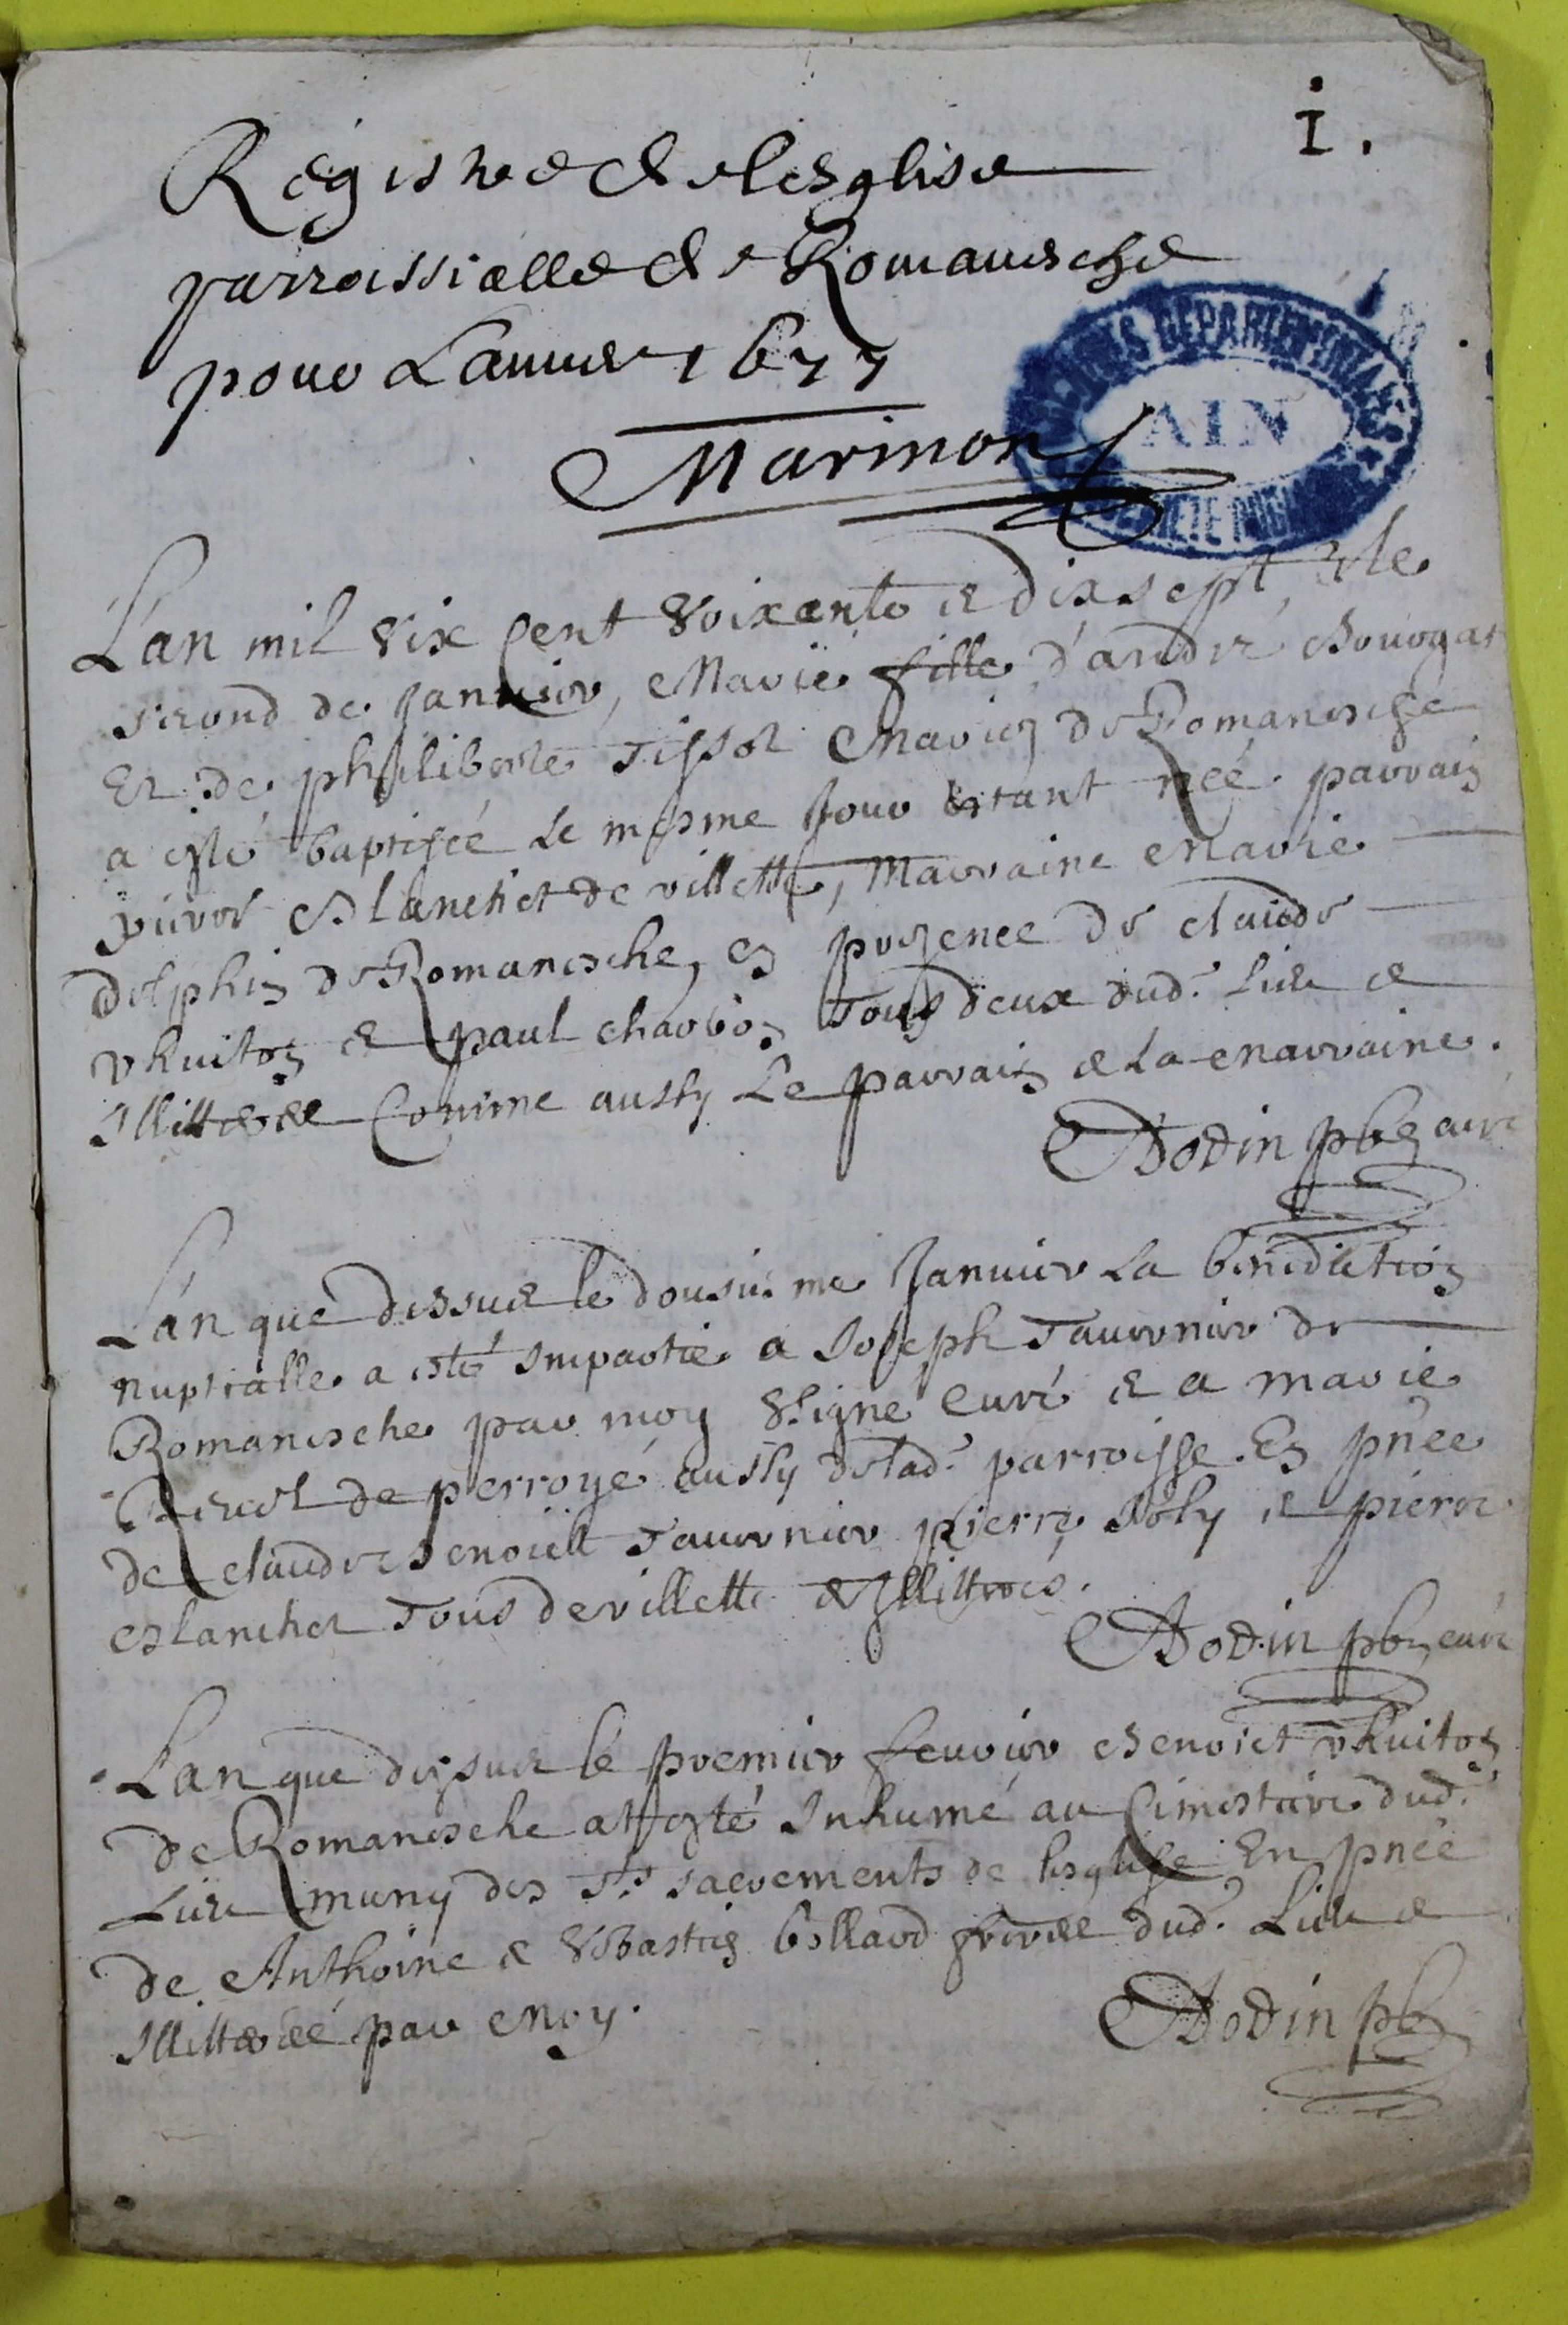 I.
Registre de lesglise
parroissielle de Romanesche
pour Lannee 1677
Marmon
ARCHIVES DEPARTEMENTALES
AIN
L'an mil six cent soixante et dix sept, et le
second de Januier, Marie fille d'andré Bourgat
Et de philiberte Tissot Mariez de Romanesche
a esté baptisée le mesme jour estant née. parrain
pierre Blanchet de villette, Marraine Marie
delphin de Romanesche, en presence de claude
vhuiton et paul charbon tous deux dud. Lieu et
Illitteres Comme aussy Le parrain et La marraine.
Dodin pbr curé
L'an que dessus le dousiesme Januier La benediction
nuptialle a esté Impartie a Joseph Tauernier de
Romanesche par moy signe Curé et a marie
de perroye aussy de lad. parroisse. En pnce
de claude Benoict Tauernier pierre Joly et pierre
Blanchet Tous de villette et Illitterés.
Dodin pbr curé
L'an que dessus le premier feurier Benoict vhuiton
de Romanesche at esté Inhumé au Cimestiere dud.
Lieu muny des Sts sacrements de lesglise En pnce
de Anthoine et Sebastien bollard freres dud. Lieu et
Illitterés par Moy.
Dodin pbr